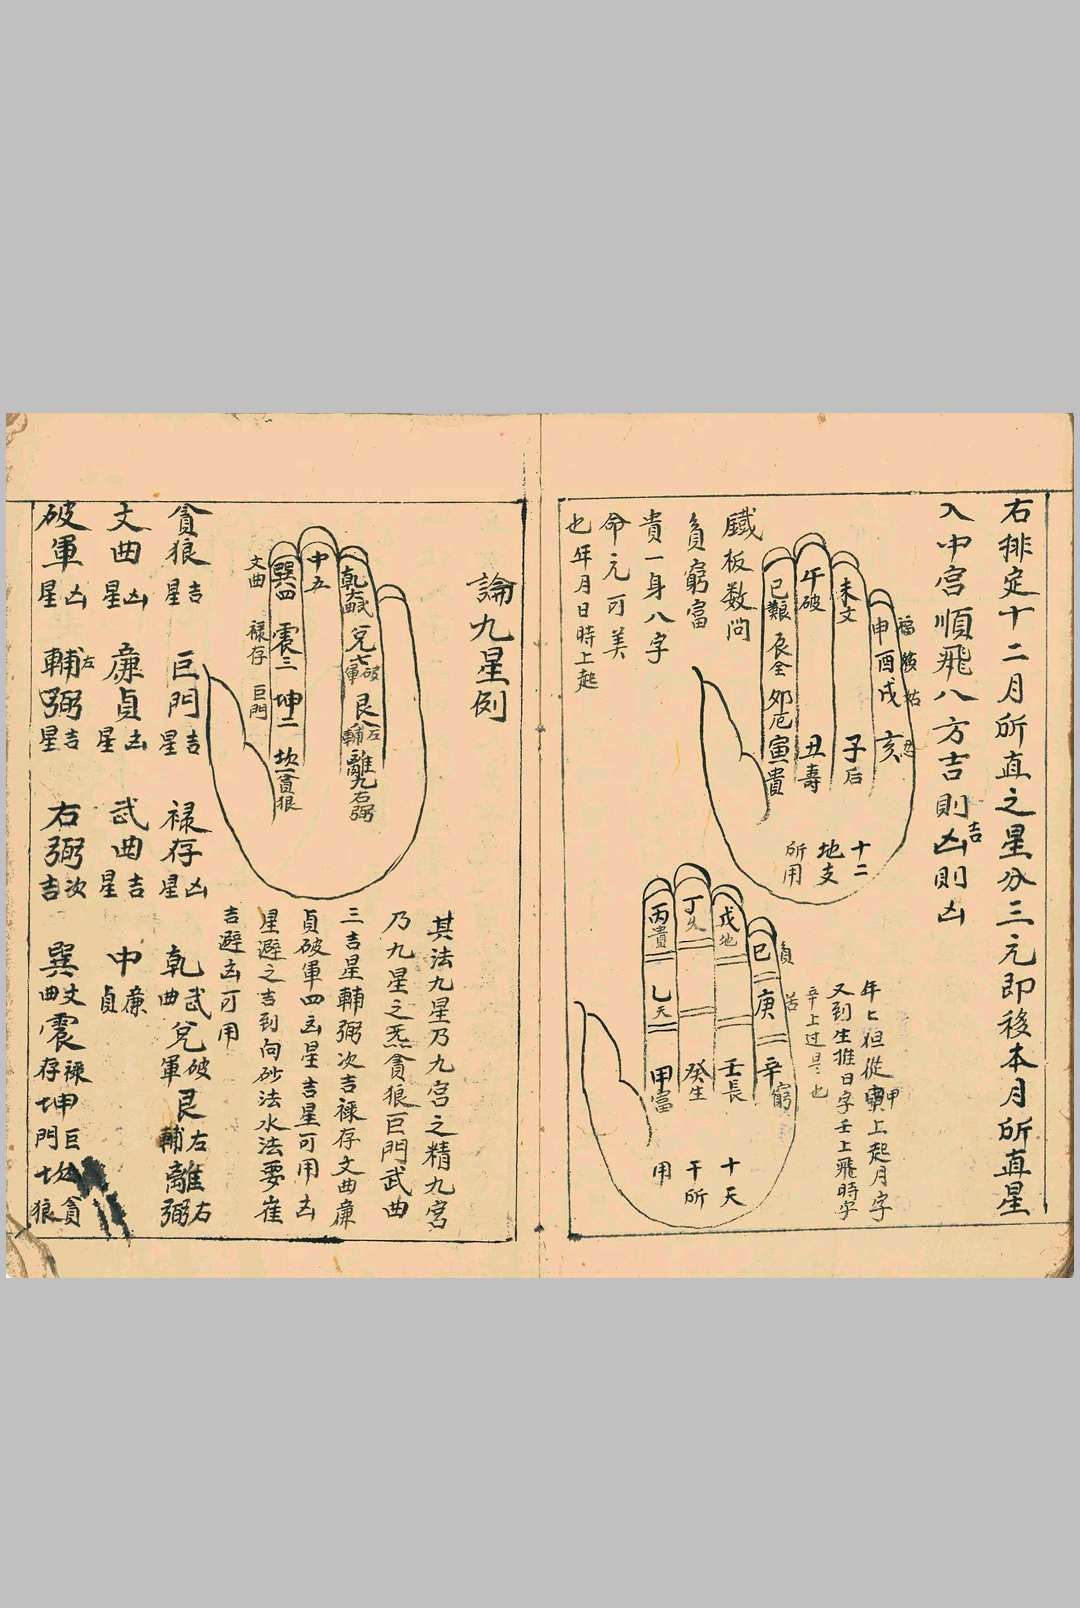 右排定十二月所直之星分三元即移本月所直星
入中宮順飛八方吉則吉凶則凶
鐵板数问
貧窮富
貴一身八字
命元可美
也年月日時上起
午破
未文
申
酉
戌
亥
巳艱
辰全
卯厄
寅貴
丑壽
子后
福
姑
十二
地支
所用
丙貴
丁
戊地
巳
負
乙天
庚
苦
甲富
癸生
壬長
辛窮
十天
干所
用
甲
上起月字
又到生推日字壬上飛時字
辛上过是也
論九星例
中五
巽四
乾六武
文曲
震三
兌七破軍
禄存
坤二
艮八左輔
巨門
坎一貪狼
離九右弼
其法九星乃九宮之精九宮
乃九星之炁貪狼巨門武曲
三吉星輔弼次吉禄存文曲廉
貞破軍四凶星吉星可用凶
星避之吉到向砂法水法要崔
吉避凶可用
貪狼吉星 巨門吉星 禄存凶星 乾武曲兌破軍艮左輔離右弼
文曲凶星 廉貞凶星 武曲吉星 中廉貞
破軍凶星 左輔弼吉星 右弼次吉 巽文曲震禄存坤巨門坎貪狼